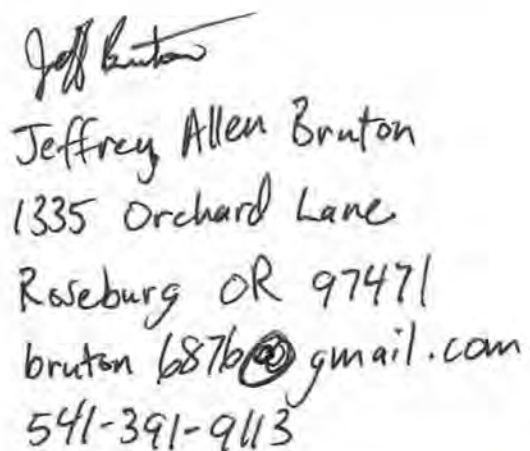 Jeff Bruton
Jeffrey Allen Bruton
1335 Orchard Lane
Roseburg OR 97471
bruton 6876@gmail.com
541-391-9113